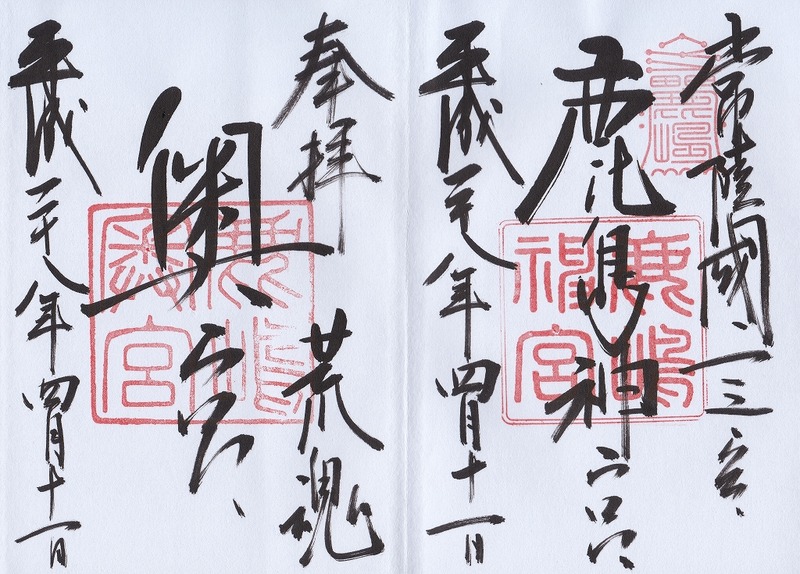 常陸國一之宮
鹿島神宮
鹿嶋神宮
平成二十八年四月十一日
奉拝 荒魂
奥宮
鹿嶋奥宮
平成二十八年四月十一日